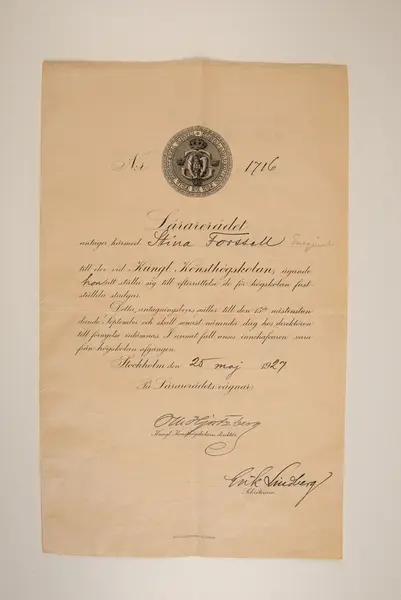 Nr. 1716
Lärarerådet
antager härmed Stina Forssell
till elev vid Kungl. Konsthögskolan, ägande
hon att ställa sig till efterrättelse de för högskolan fast-
ställda stadgar.
Detta antagningsbevis gäller till den 15de nästinstun-
dande September och skall senast nämnde dag hos direktören
till förnyelse inlämnas. I annat fall anses innehafvaren vara
från högskolan afgången.
Stockholm den 25 maj 1927
På Lärarerådets vägnar:
Olle Hjortzberg
Kungl. Konsthögskolans direktör.
Erik Lindberg
Sekreterare.